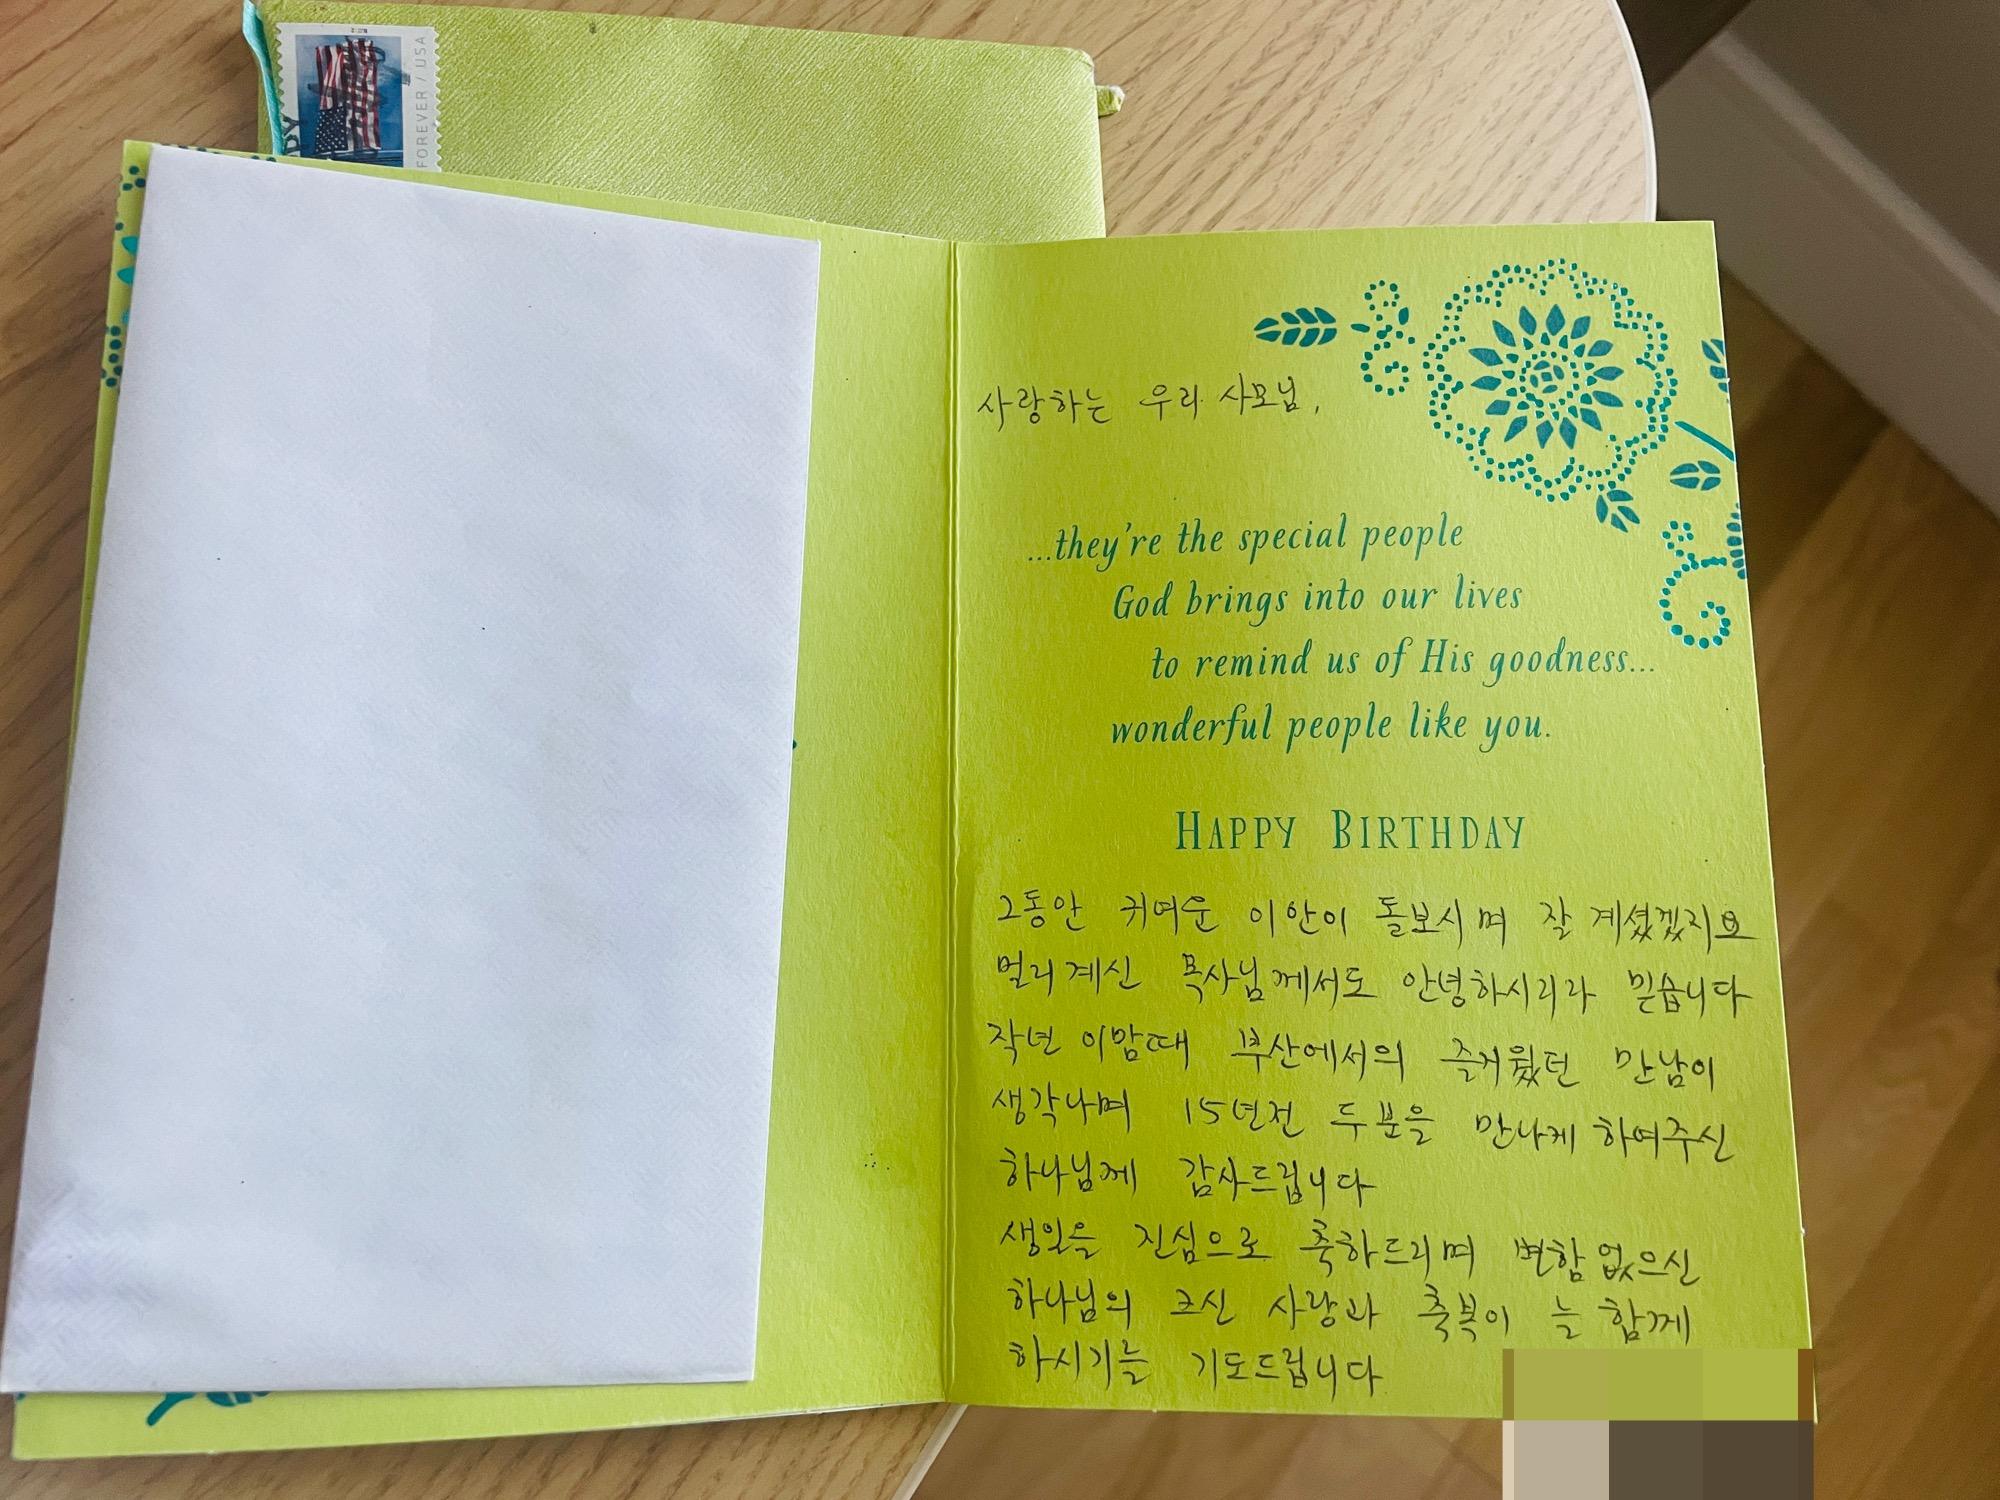 FOREVER / USA
사랑하는 우리 사모님,
...they're the special people
God brings into our lives
to remind us of His goodness...
wonderful people like you.
HAPPY BIRTHDAY
그동안 귀여운 이안이 돌보시며 잘 계셨겠지요
멀리 계신 목사님께서도 안녕하시리라 믿습니다
작년 이맘때 부산에서의 즐거웠던 만남이
생각나며 15년전 두분을 만나게 하여주신
하나님께 감사드립니다
생일을 진심으로 축하드리며 변함없으신
하나님의 크신 사랑과 축복이 늘 함께
하시기를 기도드립니다